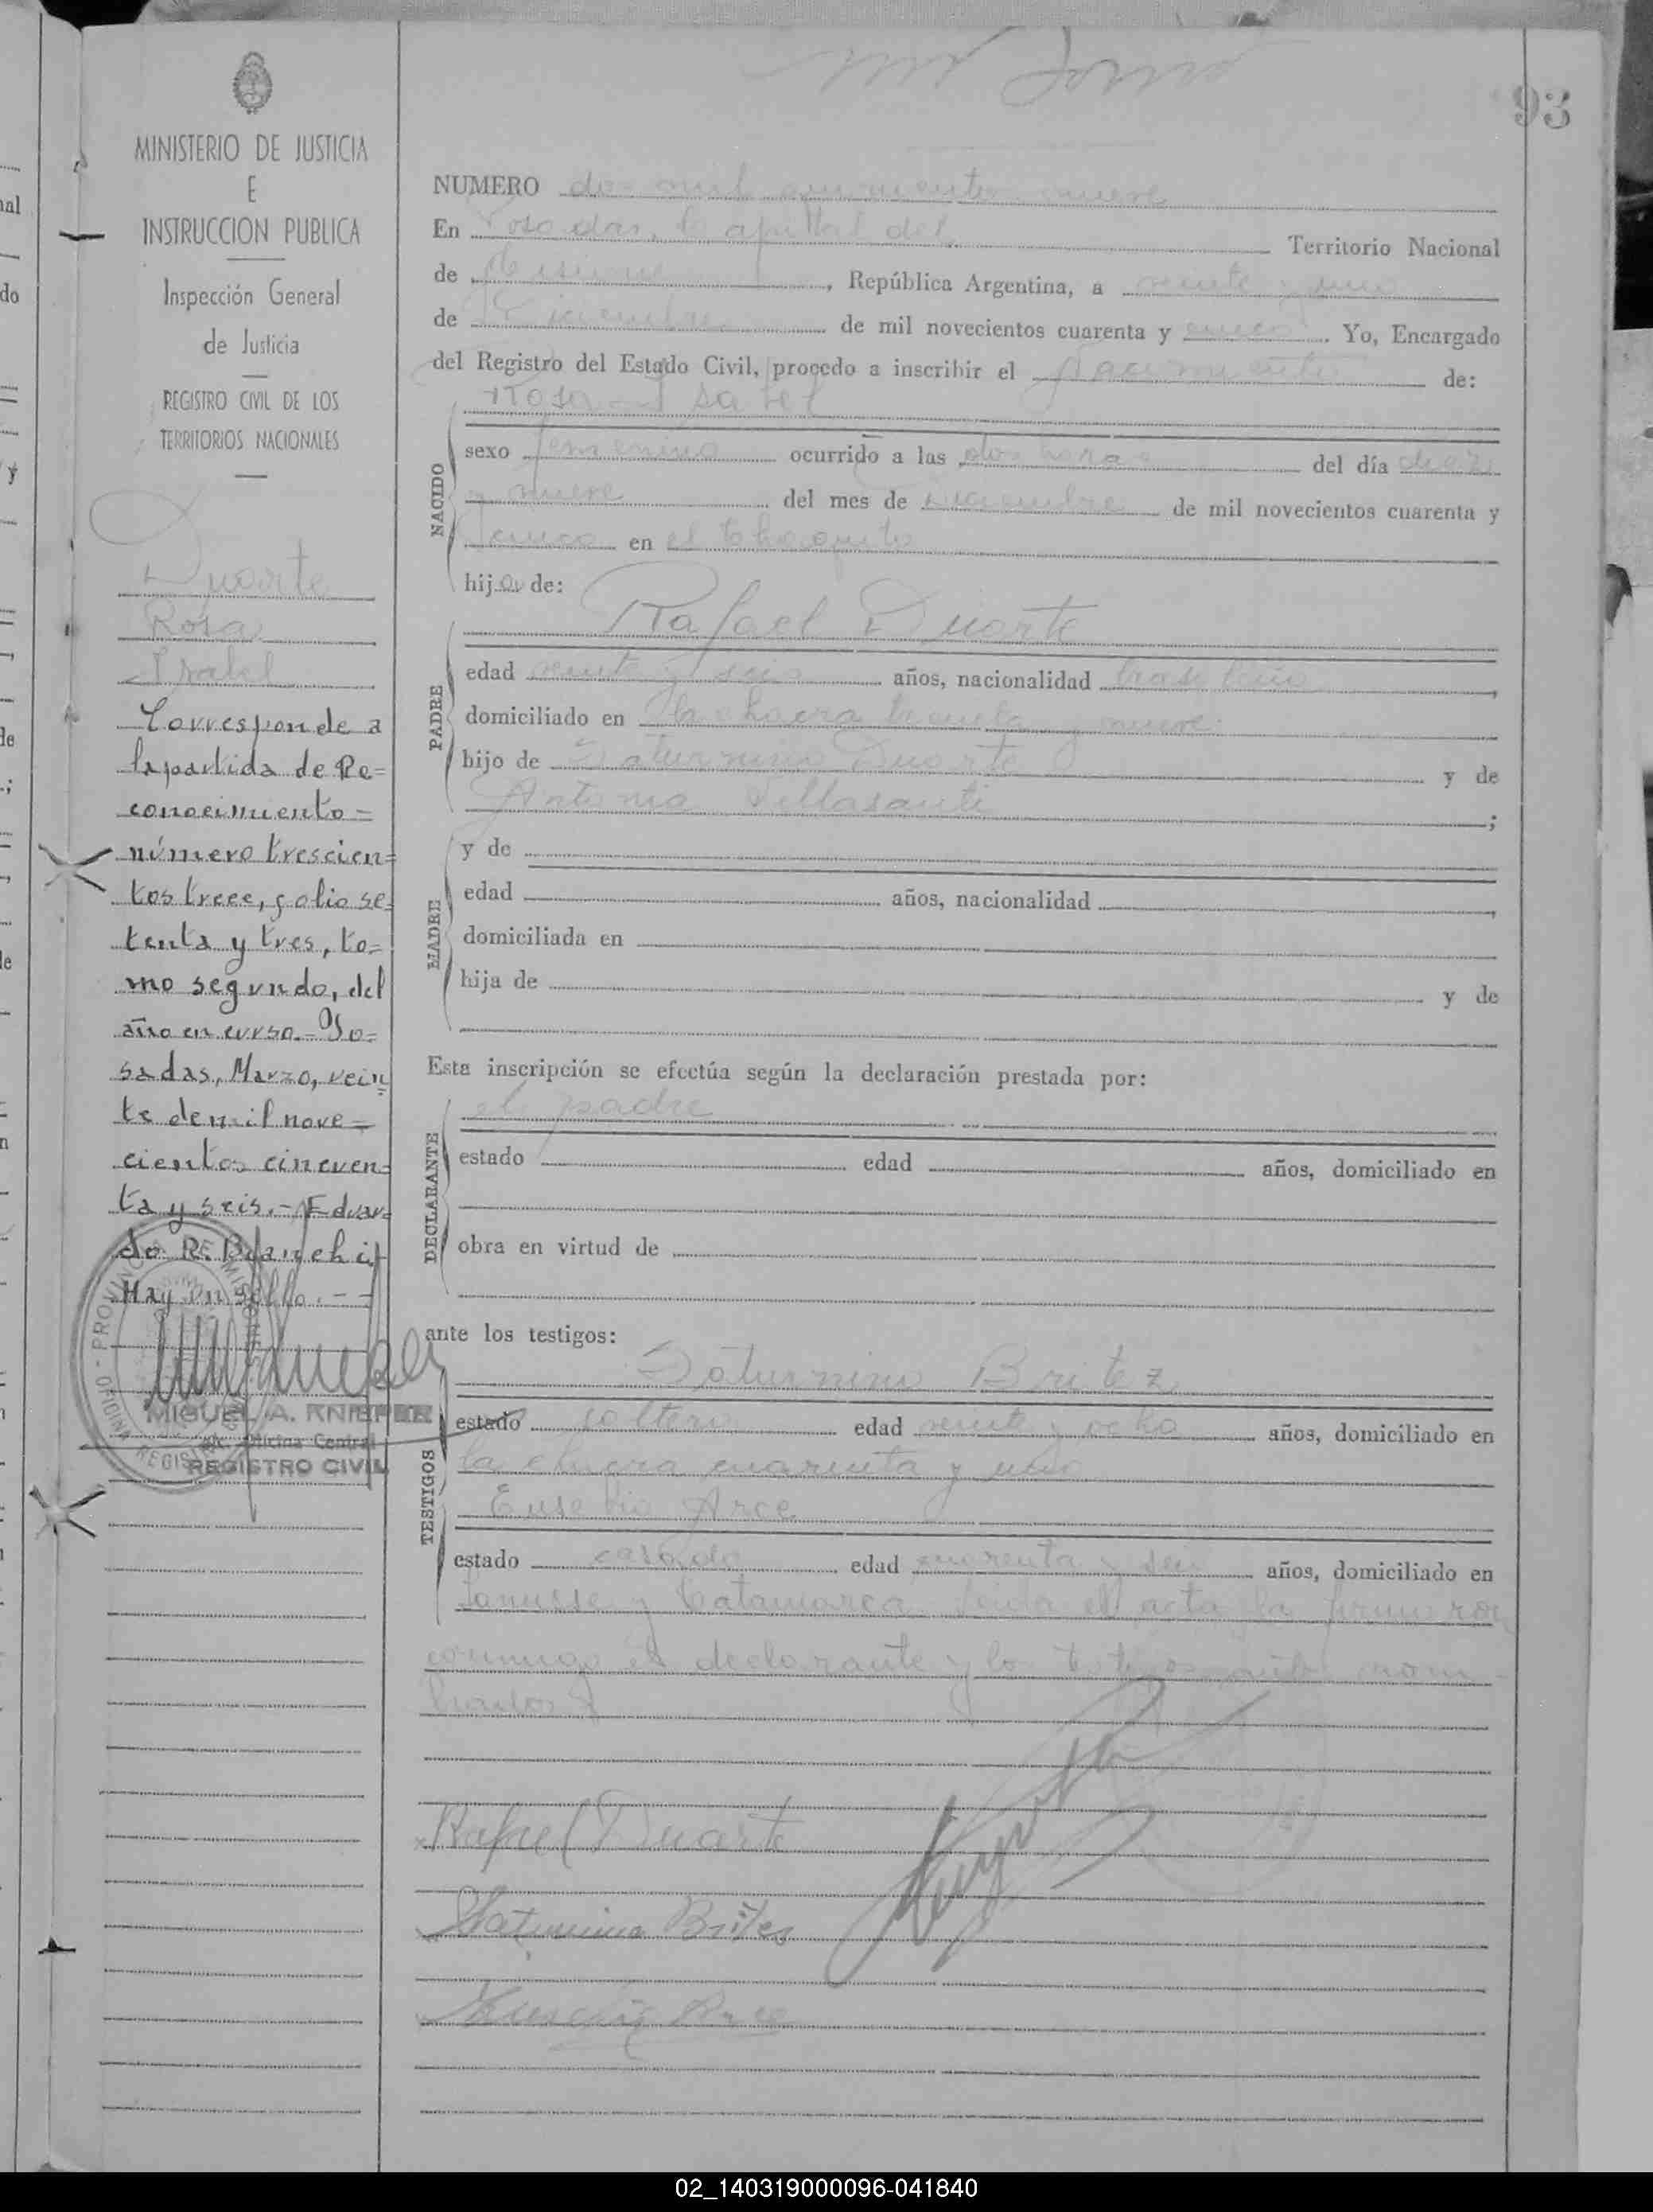 93
MINISTERIO DE JUSTICIA
E
INSTRUCCION PUBLICA
Inspección General
de Justicia
REGISTRO CIVIL DE LOS
TERRITORIOS NACIONALES
Duarte
Rosa
Isabel
Corresponde a
la partida de Re=
conocimiento=
número trescien=
tos trece, folio se=
tenta y tres, to=
mo segundo, del
año en curso.- Po=
sadas, Marzo, vein
te de mil nove=
cientos cincuen=
ta y seis.- Eduar=
do R. Bianchi
Hay un sello.--
PROVINCIA DE MISIONES
MIGUEL A. KNIEPER
Oficina Central
REGISTRO CIVIL
NUMERO dos mil nueve
En Posadas, la capital del Territorio Nacional
de Misiones, República Argentina, a veinte y uno
de Diciembre de mil novecientos cuarenta y cinco. Yo, Encargado
del Registro del Estado Civil, procedo a inscribir el Nacimiento de:
Rosa Isabel
NACIDO
sexo femenino ocurrido a las dos horas del día diez
y nueve del mes de Diciembre de mil novecientos cuarenta y
cinco en el
hija de:
Rafael Duarte
PADRE
edad veinte y seis años, nacionalidad brasileño,
domiciliado en la chacra y nueve
hijo de Saturnino Duarte y de
Antonia Villasanti;
MADRE
y de
edad años, nacionalidad
domiciliada en
hija de y de
Esta inscripción se efectúa según la declaración prestada por:
el padre
DECLARANTE
estado edad años, domiciliado en
obra en virtud de
ante los testigos:
Saturnino Britez
TESTIGOS
estado soltero edad veinte y ocho años, domiciliado en
la chacra cuarenta y uno
Eusebio Arce
estado casado edad cuarenta y seis años, domiciliado en
Lanusse y Catamarca. Leída el acta la firmaron
conmigo el declarante y los testigos nom-
brados
Rafael Duarte
Saturnino Britez
Arce
02_140319000096-041840